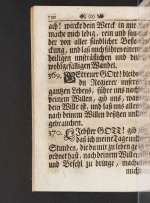 ach! wircke dein Werck in mir,
mache mich ledig, rein und son-
der von aller sündlicher Befle-
ckung, und laß mich führen einen
heiligen unsträflichen und dir
wohlgefälligen Wandel.
369. Getreuer GOtt! bleibe
du Regierer meines
gantzen Lebens, führe uns nach
deinem Willen, gib uns, was
dein Wille ist, und laß uns alles
nach deinem Willen besitzen und
gebrauchen.
370. Liebster GOTT! gib
das ich meine Tage und
Stunden, die du mir zu leben ge-
ordnet hast, nach deinem Willen
und Befehl zu bringe,
nicht